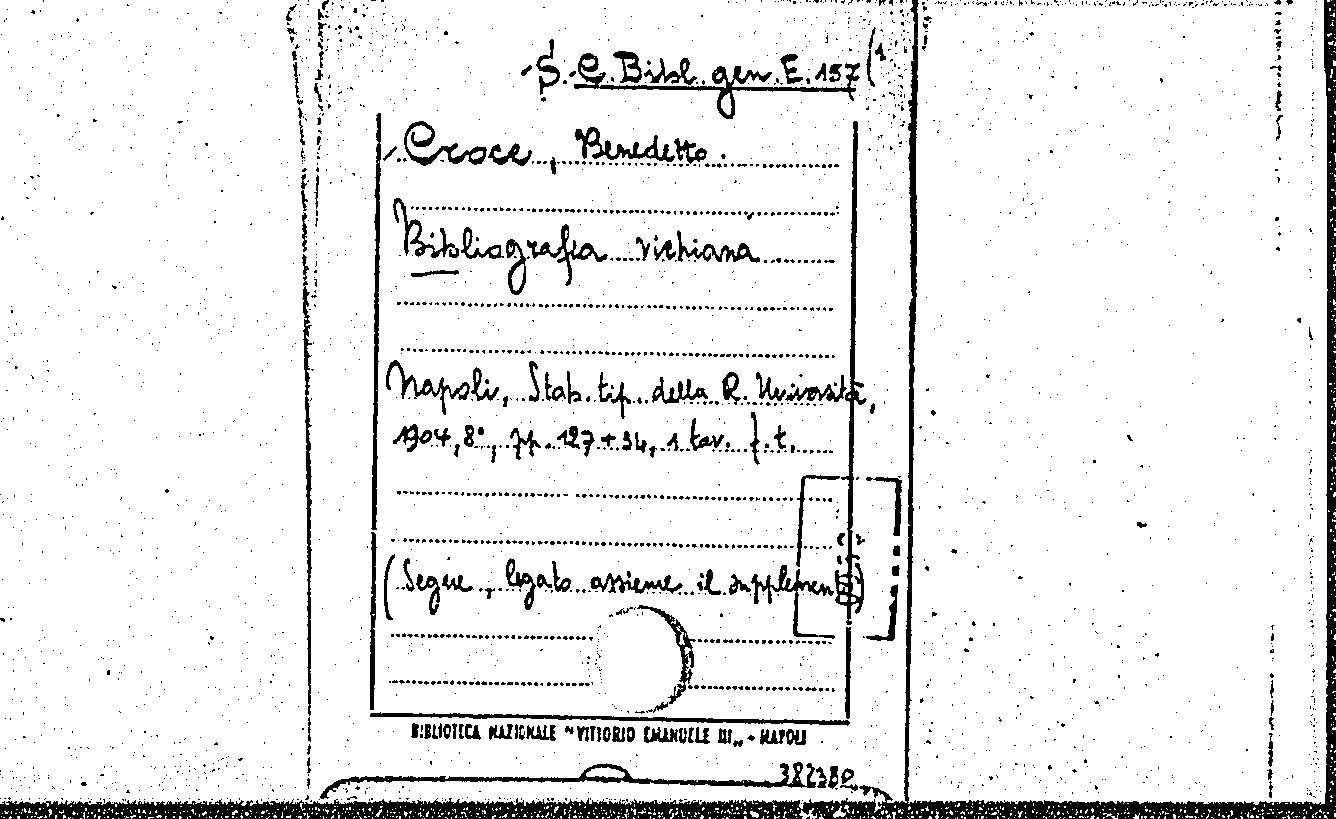 S. C. Bibl. gen. E. 157 (1
Croce, Benedetto.
Bibliografia vichiana
Napoli, Stab. tip. della R. Università,
1904, 8°, pp. 127+34, 1 tav. f. t.
(Segue, legato assieme il supplemen
BIBLIOTECA NAZIONALE "VITTORIO EMANUELE III„ - NAPOLI
382380